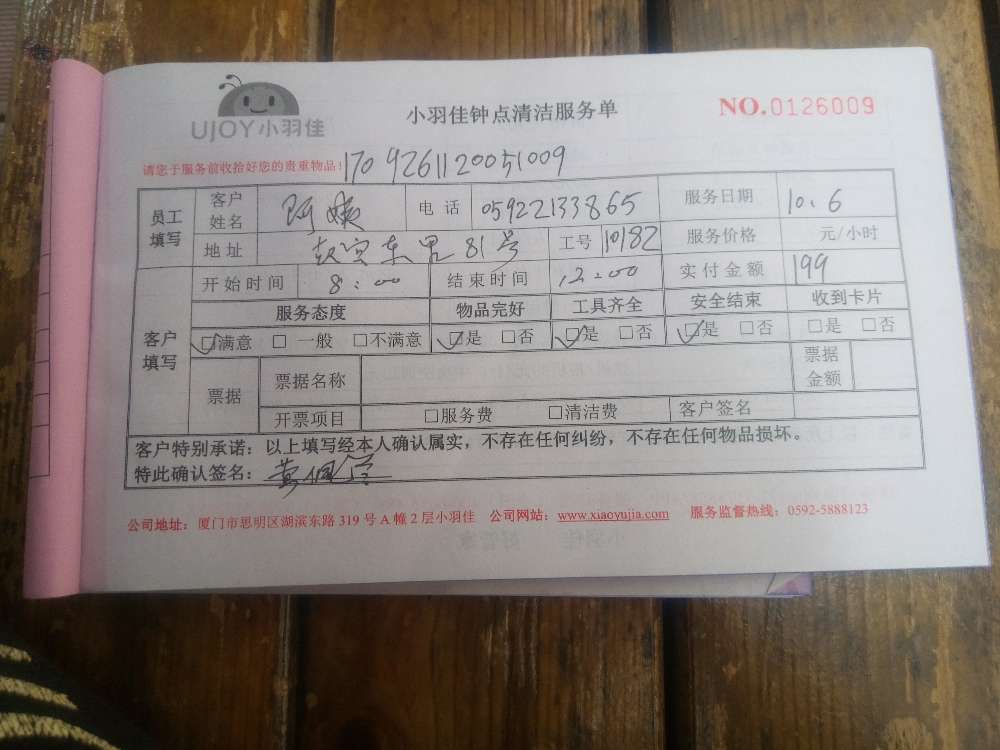 UJOY小羽佳
小羽佳钟点清洁服务单
NO.0126009
请您于服务前收拾好您的贵重物品！
170 9261120051009
员工填写 客户姓名 阿姨 电话 05922133865 服务日期 10.6
地址 东里81号 工号 10182 服务价格 元/小时
客户填写 开始时间 8:00 结束时间 12:00 实付金额 199
服务态度 物品完好 工具齐全 安全结束 收到卡片
☑满意 □ 一般 □不满意 ☑是 □否 ☑是 □否 ☑是 □否 □是 □否
票据 票据名称 票据金额
开票项目 □服务费 □清洁费 客户签名
客户特别承诺：以上填写经本人确认属实，不存在任何纠纷，不存在任何物品损坏。
特此确认签名：黄
公司地址：厦门市思明区湖滨东路 319 号 A 幢 2 层小羽佳 公司网站：www.xiaoyujia.com 服务监督热线：0592-5888123